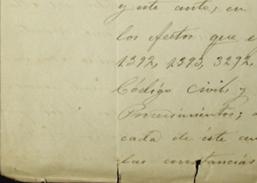 y este auto, en
los efectos que e
1392, 1393, 3292,
Código Civil y
Procedimientos,
cada de éste au
las constancias